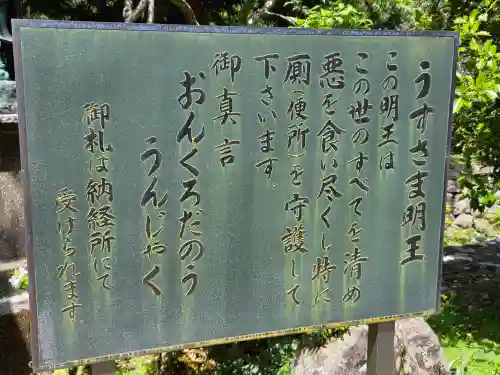 うすさま明王
この明王は
この世のすべてを清め
悪を食い尽くし特に
厠（便所）を守護して
下さいます。
御真言
おんくろだのう
うんじゃく
御札は納経所にて
受けられます